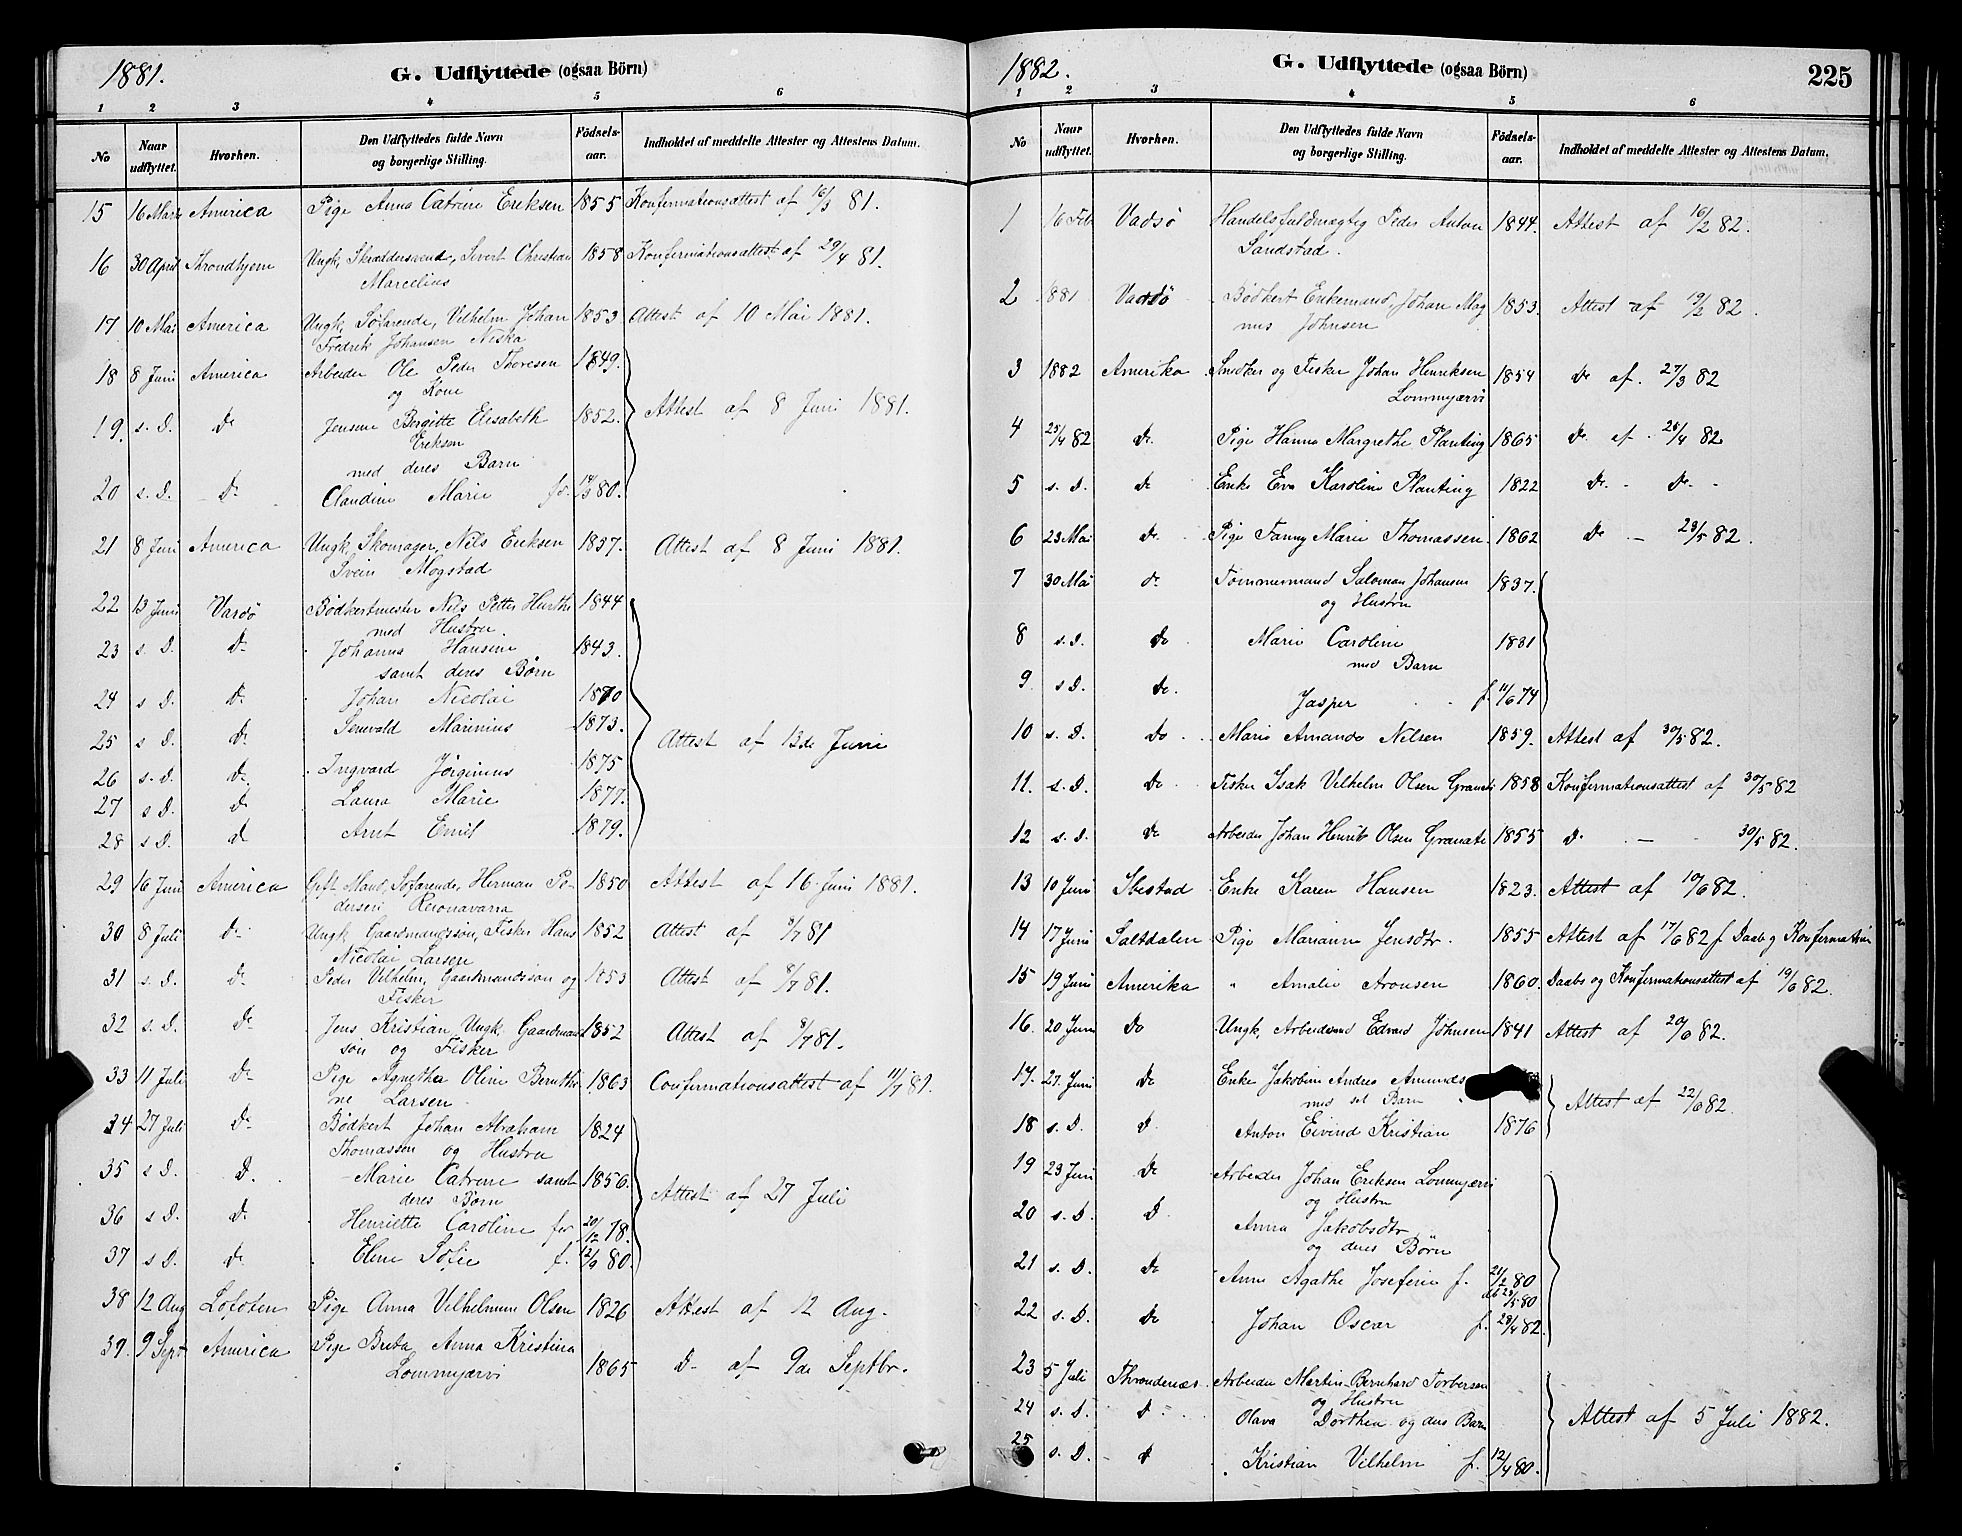 1881.
G. Udflyttede (ogsaa Börn)
1 2 3 4 5 6
No Naar udflyttet. Hvorhen. Den Udflyttedes fulde Navn og borgerlige Stilling. Födsels-aar. Indholdet af meddelte Attester og Attestens Datum.
15 16 Marts America Pige Anna Catrine Eriksen 1855 Konfirmationsattest af 16/3 81.
16 30 April Throndhjem Ungk. Skræddersvend, Sivert Christian 1858 Konfirmationsattest af 29/4 81.
Marcelius
17 10 Mai America Ungk, Söfarende, Vilhelm Johan 1853 Attest af 10 Mai 1881.
Fredrik Johansen Niska
18 8 Juni America Arbeider Ole Peder Thoresen 1849.
og Kone
19. s. D. Do Jensine Bergitte Elisabeth 1852. Attest af 8 Juni 1881.
Eriksen
med deres Barn
20 s. D. Do Claudine Marie fö. 14/3 80.
21 8 Juni America Ungk, Skomager, Nils Eriksen 1857. Attest af 8 Juni 1881.
Svein Mogstad
22 13 Juni Vardö Bödkermester Nils Petter Hurthe 1844
med Hustru
23 s. D. Do Johanna Hansine 1843.
samt deres Børn
24 s D. Do Johan Nicolai 1870
25 s D. Do Senvald Marinius 1873. Attest af 13de Juni
26 s. D. Do Ingvard Jörginius 1875
27 s D. Do Laura Marie 1877.
28 s D. do Arnt Emil 1879.
29 16 Juni America Gift Mand, Söfarende, Herman Pe- 1850 Attest af 16 Juni 1881.
dersen Reronavarra
30 8 Juli Do Ungk Gaardmandssön, Fisker Hans 1852 Attest af 8/7 81
Nicolai Larsen
31 s. D. Do Peder Vilhelm, Gaardmandssøn og 1853 Attest af 8/7 81.
Fisker
32 s. D. Do Jens Kristian, Ungk. Gaardmands 1852 Attest af 8/7 81.
sön og Fisker
33 11 Juli Do Pige Agnetha Oline Bernthi- 1863 Confirmationsattest af 11/7 81.
ne Larsen
34 27 Juli Do Bödkert Johan Abraham 1824
Thomassen og Hustru
35 s D. D. Marie Catrine samt 1856. Attest af 27 Juli
deres Børn
36 s D. Do Henriette Caroline fø. 20/12 78.
37 s D. do Eline Sofie f. 12/9 80.
38 12 Aug Lofoten Pige Anna Vilhelmine Olsen 1826 Attest af 12 Aug.
39. 9 Sept America Pige Brita Anna Kristina
Lommjærvi 1865 Do af 9de Septbr.
1882.
G. Udflyttede (ogsaa Börn)
225
1 2 3 4 5 6
No Naar udflyttet. Hvorhen. Den Udflyttedes fulde Navn og borgerlige Stilling. Födsels-aar. Indholdet af meddelte Attester og Attestens Datum.
1 16 Feb Vadsö Handelsfuldmægtig Peder Anton 1844. Attest af 16/2 82.
Sandstad.
2 1881 Vardö Bödkert Enkemand, Johan Mag 1853. Attest af 19/2 82.
nus Johnsen
3 1882 Amerika Snedker og Fisker Johan Henriksen 1854 Do af. 27/3 82
Lommjærvi
4 25/4 82 do. Pige Hanna Margrethe Planting 1865 Do af. 25/4 82
5 s. D. do Enke Eva Karoline Planting 1822 Do. - Do. -
6 23 Mai do. Pige Fanny Marie Thomassen. 1862 Do - 23/5 82.
7 30 Mai do. Tømmermand Saloman Johansen 1837.
og Hustru
8 s. D. do Marie Caroline 1831
med Barn
9 s D. Do. Jasper f. 11/6 74
10 s. D. Do Marie Amanda Nilsen 1859. Attest af 30/5 82.
11. s. D. Do Fisker Isak Vilhelm Olsen Granati 1858 Konfirmationsattest af 30/5 82
12 s. D. Do Arbeider Johan Henrik Olsen Granate 1855 D. - 30/5 82.
13 10 Juni Ibestad Enke Karen Hansen 1823. Attest af 10/6 82.
14 17 Juni Saltdalen Pige Marianne Jensdtr. 1855 Attest af 17/6 82 f Daab og Konfirmation
15 19 Juni Amerika " Amalie Aronsen 1860. Daabs og Konfirmationsattest af 19/6 82.
16. 20 Juni Do Ungk. Arbeidsmd Edvard Johnsen 1841 Attest af 20/6 82.
17. 27. Juni Do Enke Jakobine Andrea Amunds
med sit Barn Attest af 22/6 82.
18 s. D. D. Anton Eivind Kristian 1876
19 23 Juni Do Arbeider Johan Eriksen Lommjærvi
og Hustru
20 s. D. D. Anna Jakobsdtr
og deres Börn
21 s. D. Do Anna Agathe Josefine f. 21/2 80
db 23/5 80
22 s. D. Do Johan Oscar f. 28/4 82.
23 5 Juli Throndenæs Arbeider Martin Bernhard Torbersen
og Hustru
24 s. D. D. Olava Dorthea og deres Barn Attest af 5 Juli 1882.
25 s. D. D Kristian Vilhelm f. 12/4 80.